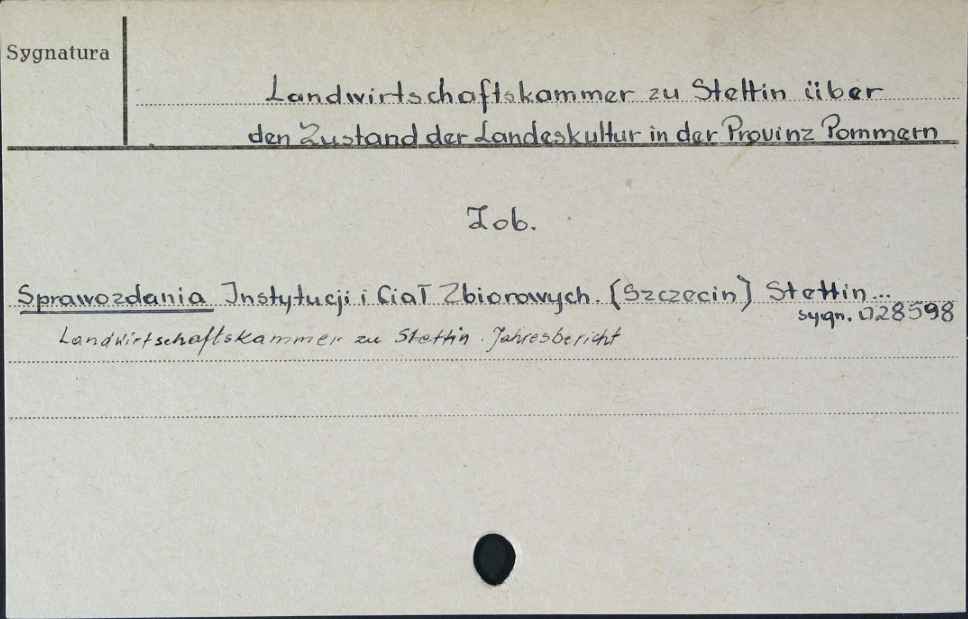 Sygnatura
Landwirtschaftskammer zu Stettin über
den Zustand der Landeskultur in der Provinz Pommern
Zob.
Sprawozdania Instytucji i Ciał Zbiorowych. (Szczecin) Stettin...
sygn. 028598
Landwirtschaftskammer zu Stettin. Jahresbericht